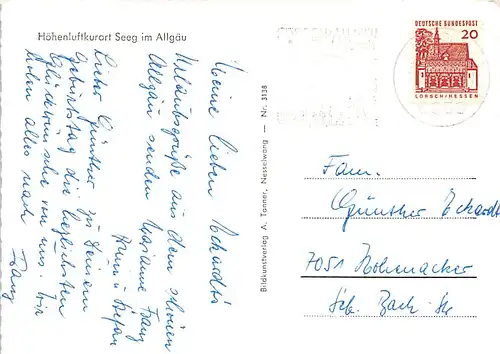 Höhenluftkurort Seeg im Allgäu
Meine lieben Eckardt's
Urlaubsgrüße aus dem schönen
Allgäu senden Marianne Franz
Lieber Günther zu Deinem
Geburtstag die herzlichsten
Glückwünsche von uns. Wir
holen alles nach
Franz
Bildkunstverlag A. Tanner, Nesselwang — Nr. 3138
DEUTSCHE BUNDESPOST
20
LORSCH/HESSEN
Fam.
Günther Eckardt
7051 Hohenacker
Seb. Bach-Str